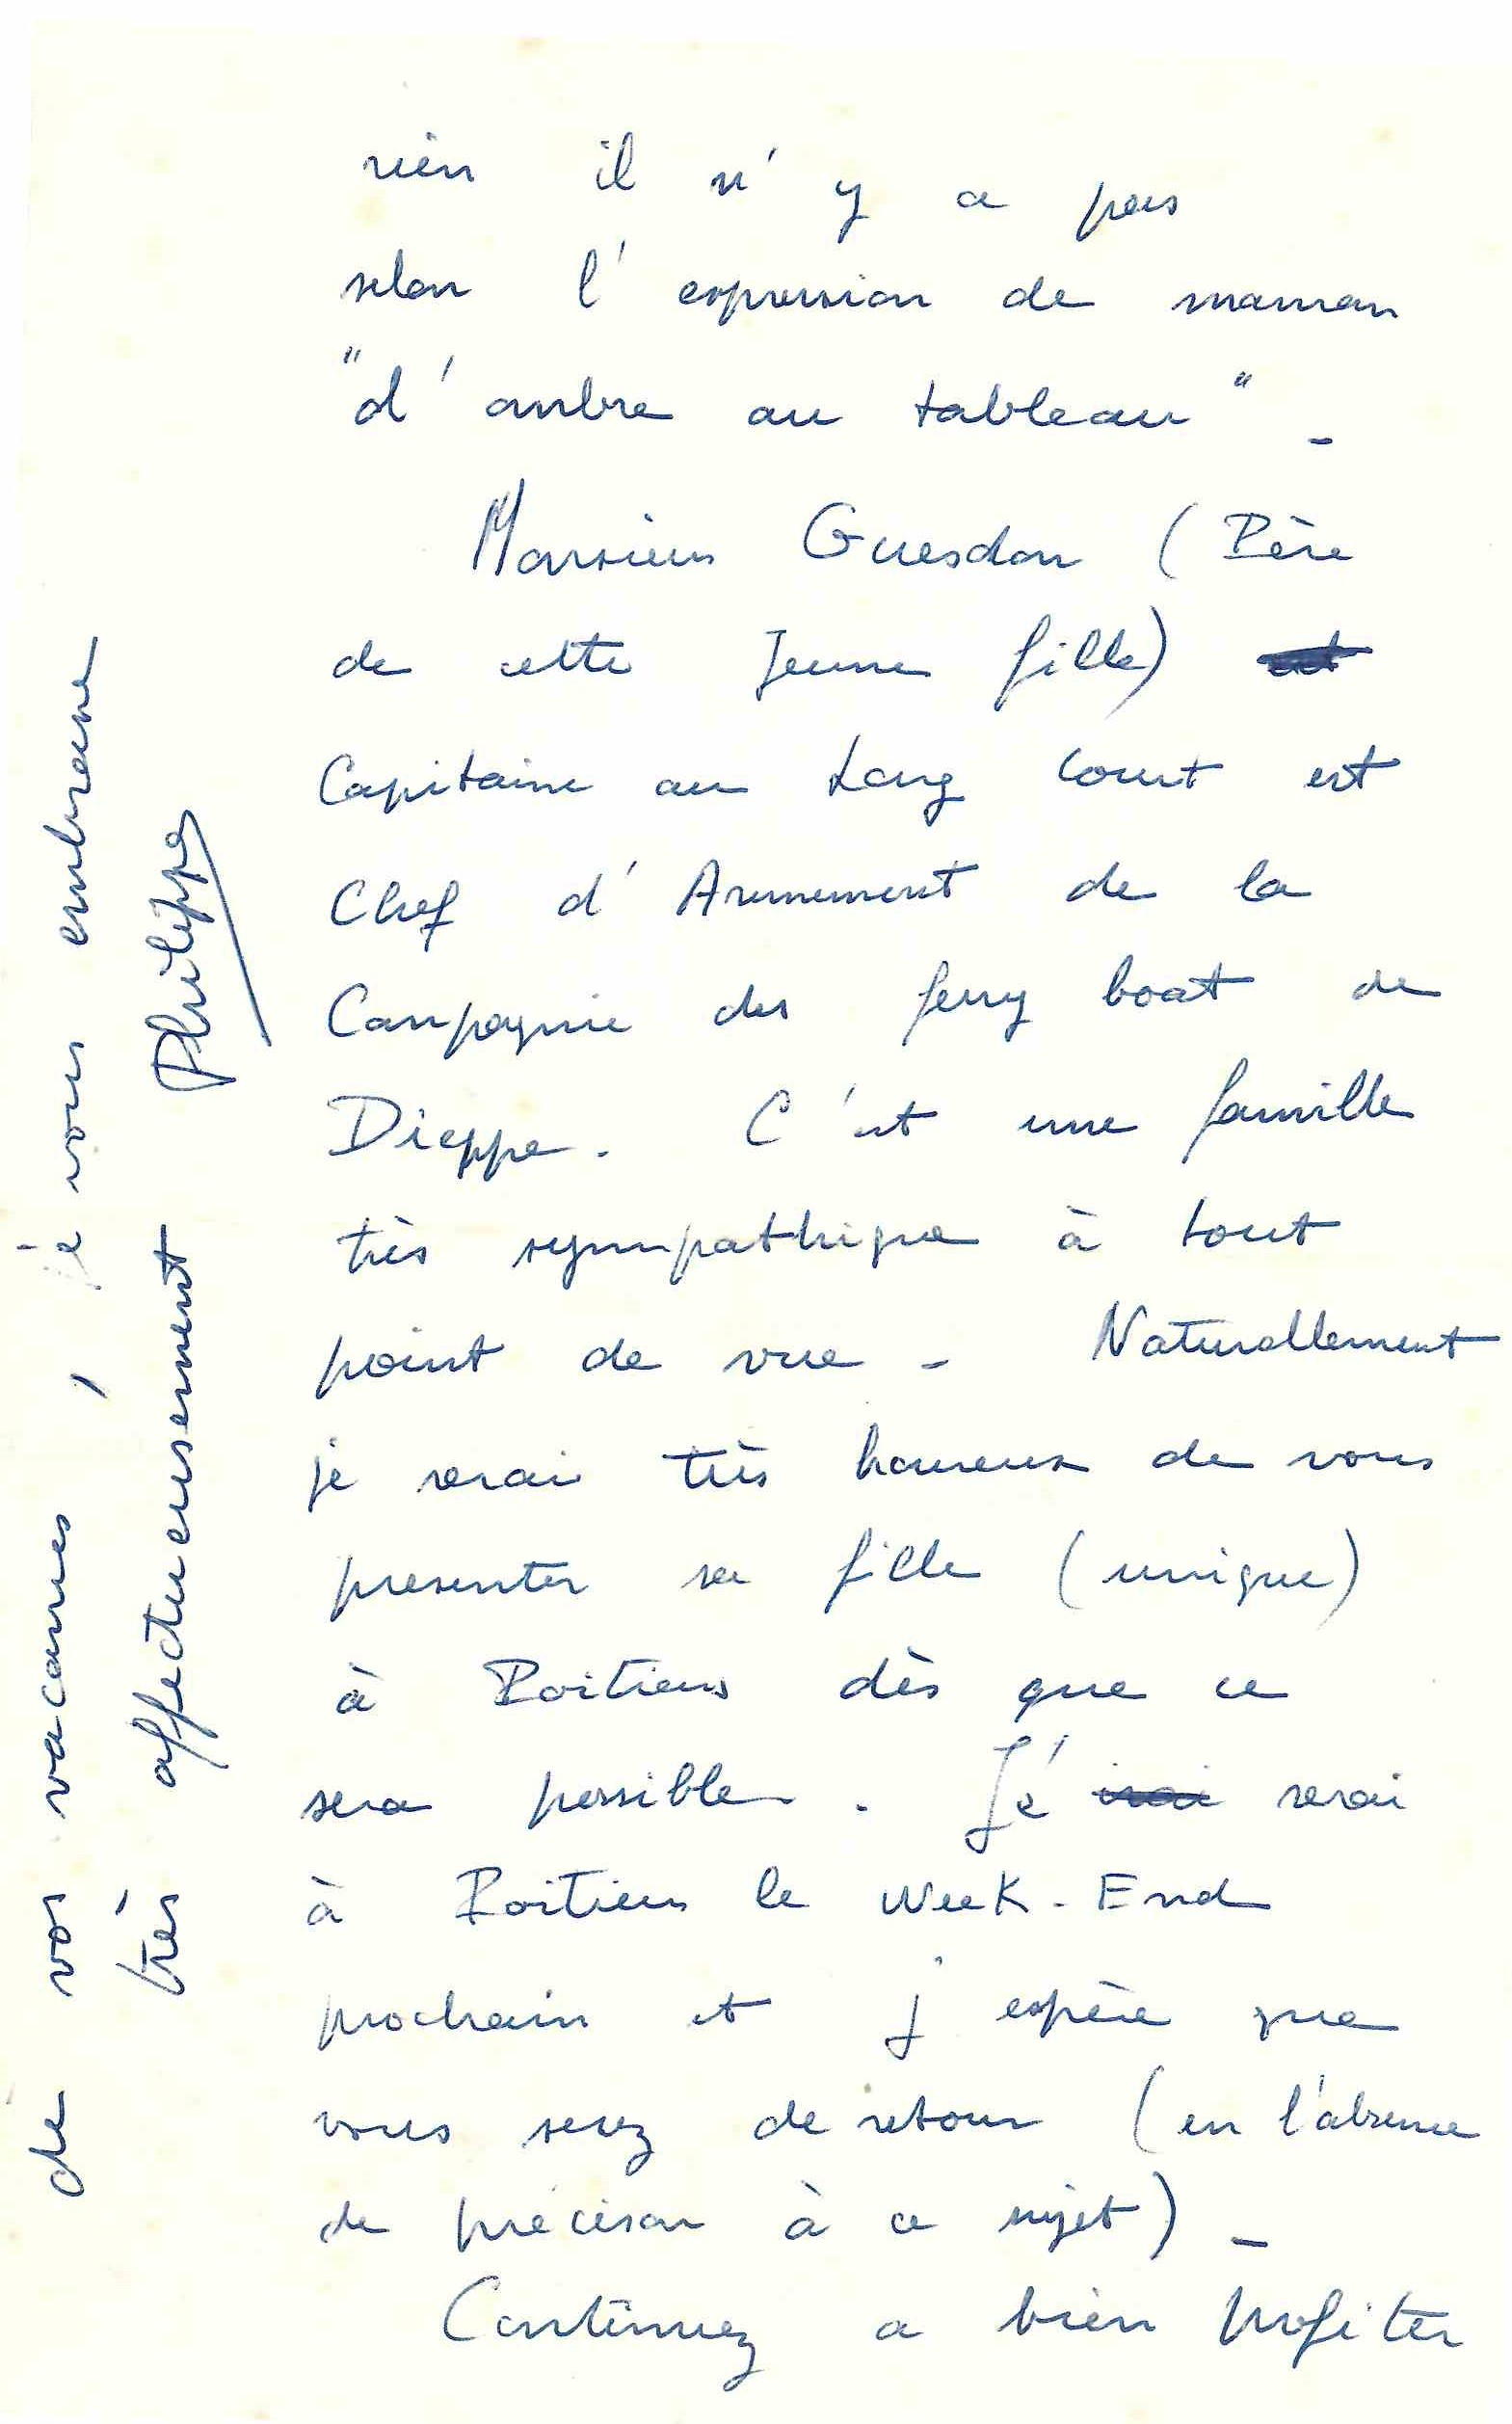 rien il n'y a pas
selon l'expression de maman
"d'ombre au tableau" _
Monsieur Guesdon (Père
de cette Jeune fille) est
Capitaine au Long Court est
Chef d'Armement de la
Compagnie des ferry boat de
Dieppe. C'est une famille
très sympathique à tout
point de vue - Naturellement
je serai très heureux de vous
presenter sa fille (unique)
à Poitiers dès que ce
sera possible. Je irai serai
à Poitiers le Week-End
prochain et j'espère que
vous serez de retour (en l'absence
de précison à ce sujet) _
Continuez a bien profiter
de vos vacances, je vous embrasse
très affectueusement Philippe